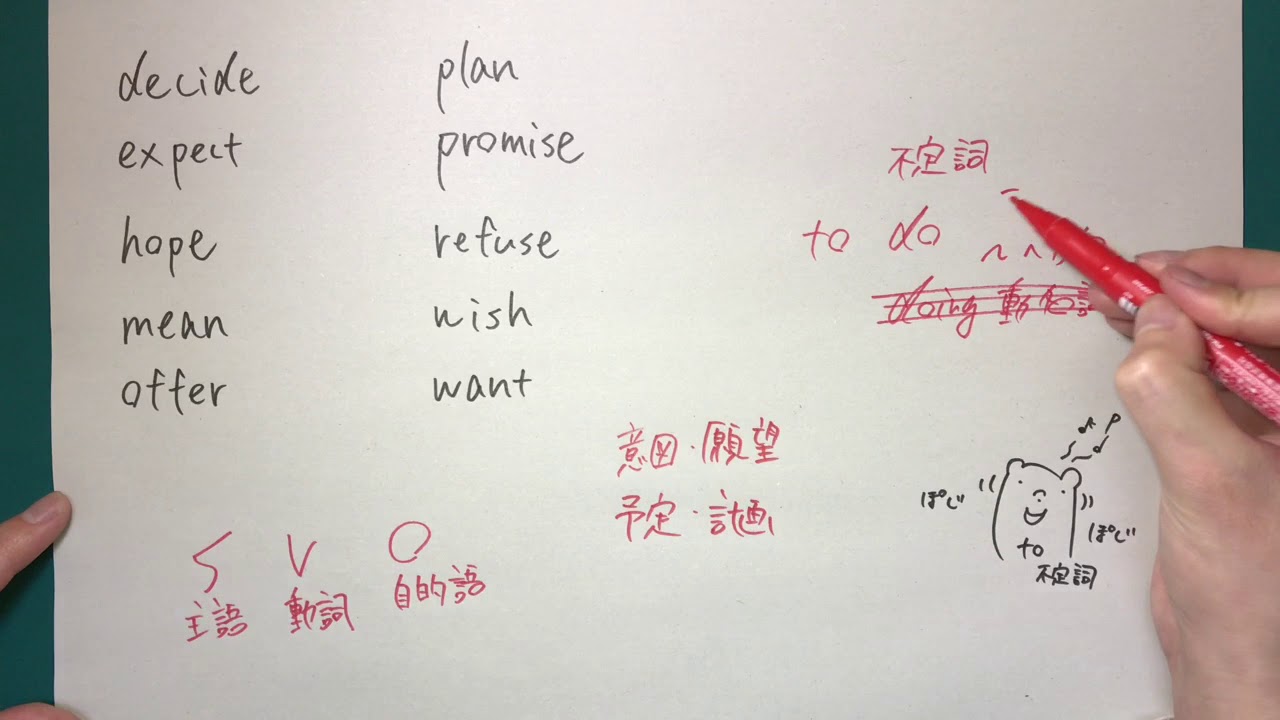 decide
expect
hope
mean
offer
plan
promise
refuse
wish
want
不定詞
to do
doing 動名詞
意図・願望
予定・計画
S V O
主語 動詞 目的語
ぽじ
ぽじ
to
不定詞